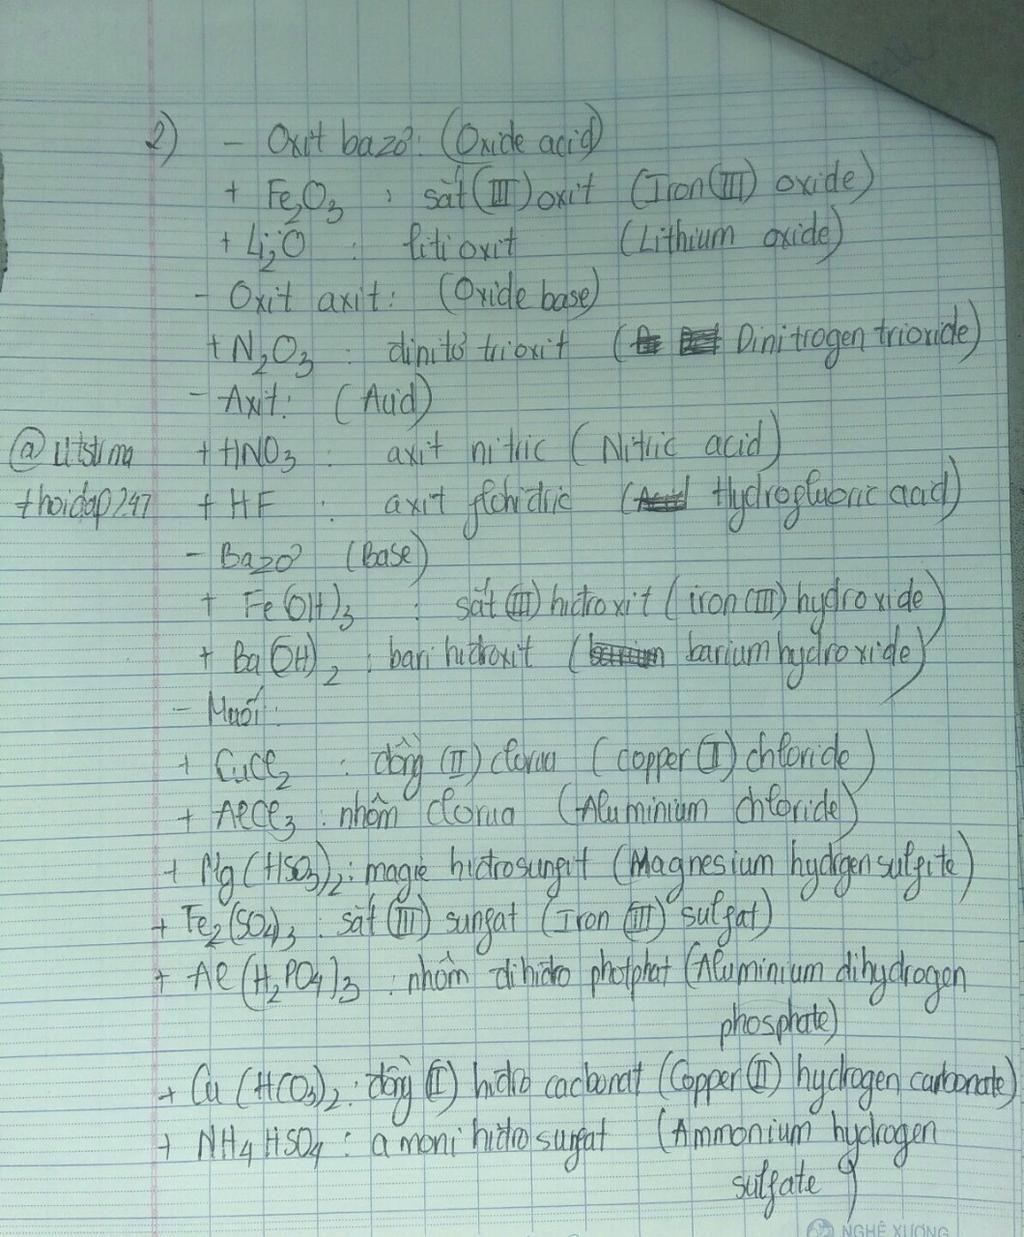 2) - Oxit bazơ: (Oxide acid)
+ Fe2O3 : sắt (III) oxit (Iron (III) oxide)
+ Li2O : liti oxit (Lithium oxide)
- Oxit axit: (Oxide base)
+ N2O3 : dinitơ trioxit (Dinitrogen trioxide)
- Axit: (Acid)
+ HNO3 : axit nitric (Nitric acid)
+ HF : axit flohidric (Hydrofluoric acid)
- Bazơ (Base)
+ Fe(OH)3 : sắt (III) hidroxit (iron (III) hydroxide)
+ Ba(OH)2 : bari hidroxit (barium hydroxide)
- Muối:
+ CuCl2 : đồng (II) clorua (copper (II) chloride)
+ AlCl3 : nhôm clorua (Aluminium chloride)
+ Mg(HSO3)2 : magie hidrosunfit (Magnesium hydrgen sulfite)
+ Fe2(SO4)3 : sắt (III) sunfat (Iron (III) sulfat)
+ Al(H2PO4)3 : nhôm dihidro photphat (Aluminium dihydrogen
phosphate)
+ Cu(HCO3)2 : đồng (II) hidro cacbonat (Copper (II) hydrogen carbonate)
+ NH4HSO4 : amoni hidro sunfat (Ammonium hydrogen
sulfate)
NGHÊ XƯƠNG